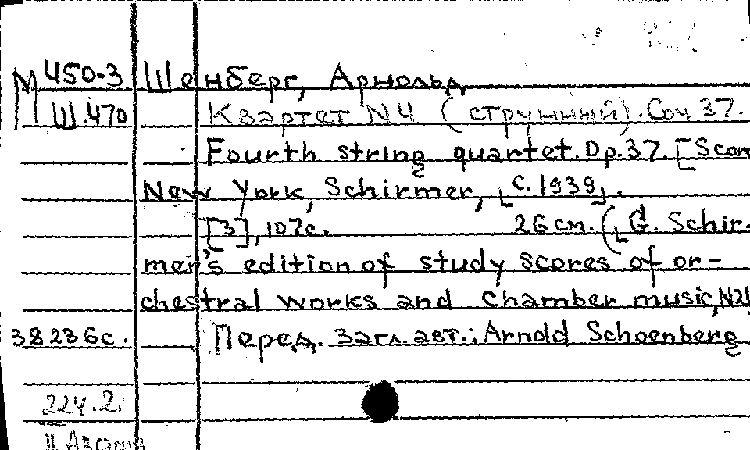 М 450-3 Шенберг, Арнольд
Ш.470 Квартет N4 (струнный). Соч 37.
Fourth string quartet. Op. 37. [Scor
New York, Schirmer, [c. 1939].
[3], 107с. 26 см. (G. Schir-
mer's edition of study scores of or-
chestral works and chamber music, N21
38236с. Перед. загл. авт.: Arnold Schoenberg
224.2.